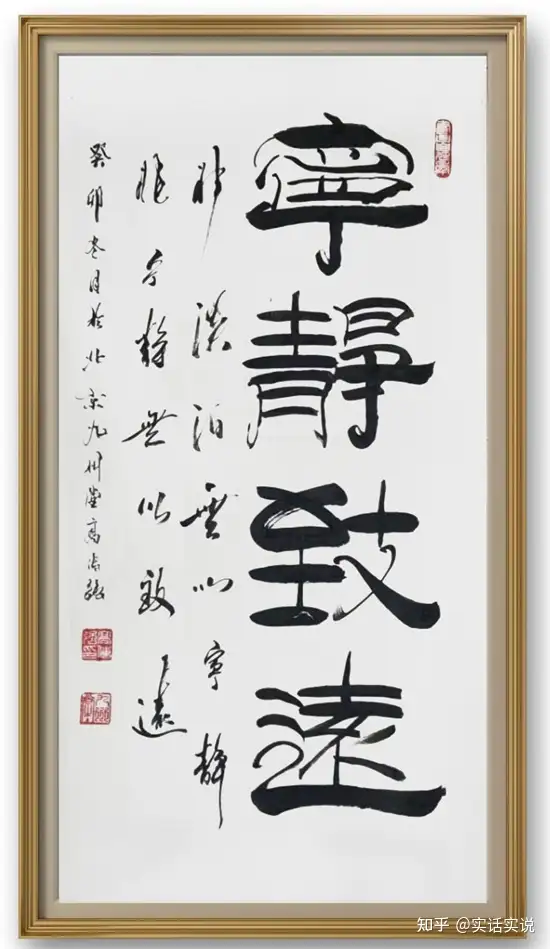 寧靜致遠
非淡泊無以寧靜
非宁静無以致遠
癸卯冬月於北京九州堂高
知乎 @实话实说